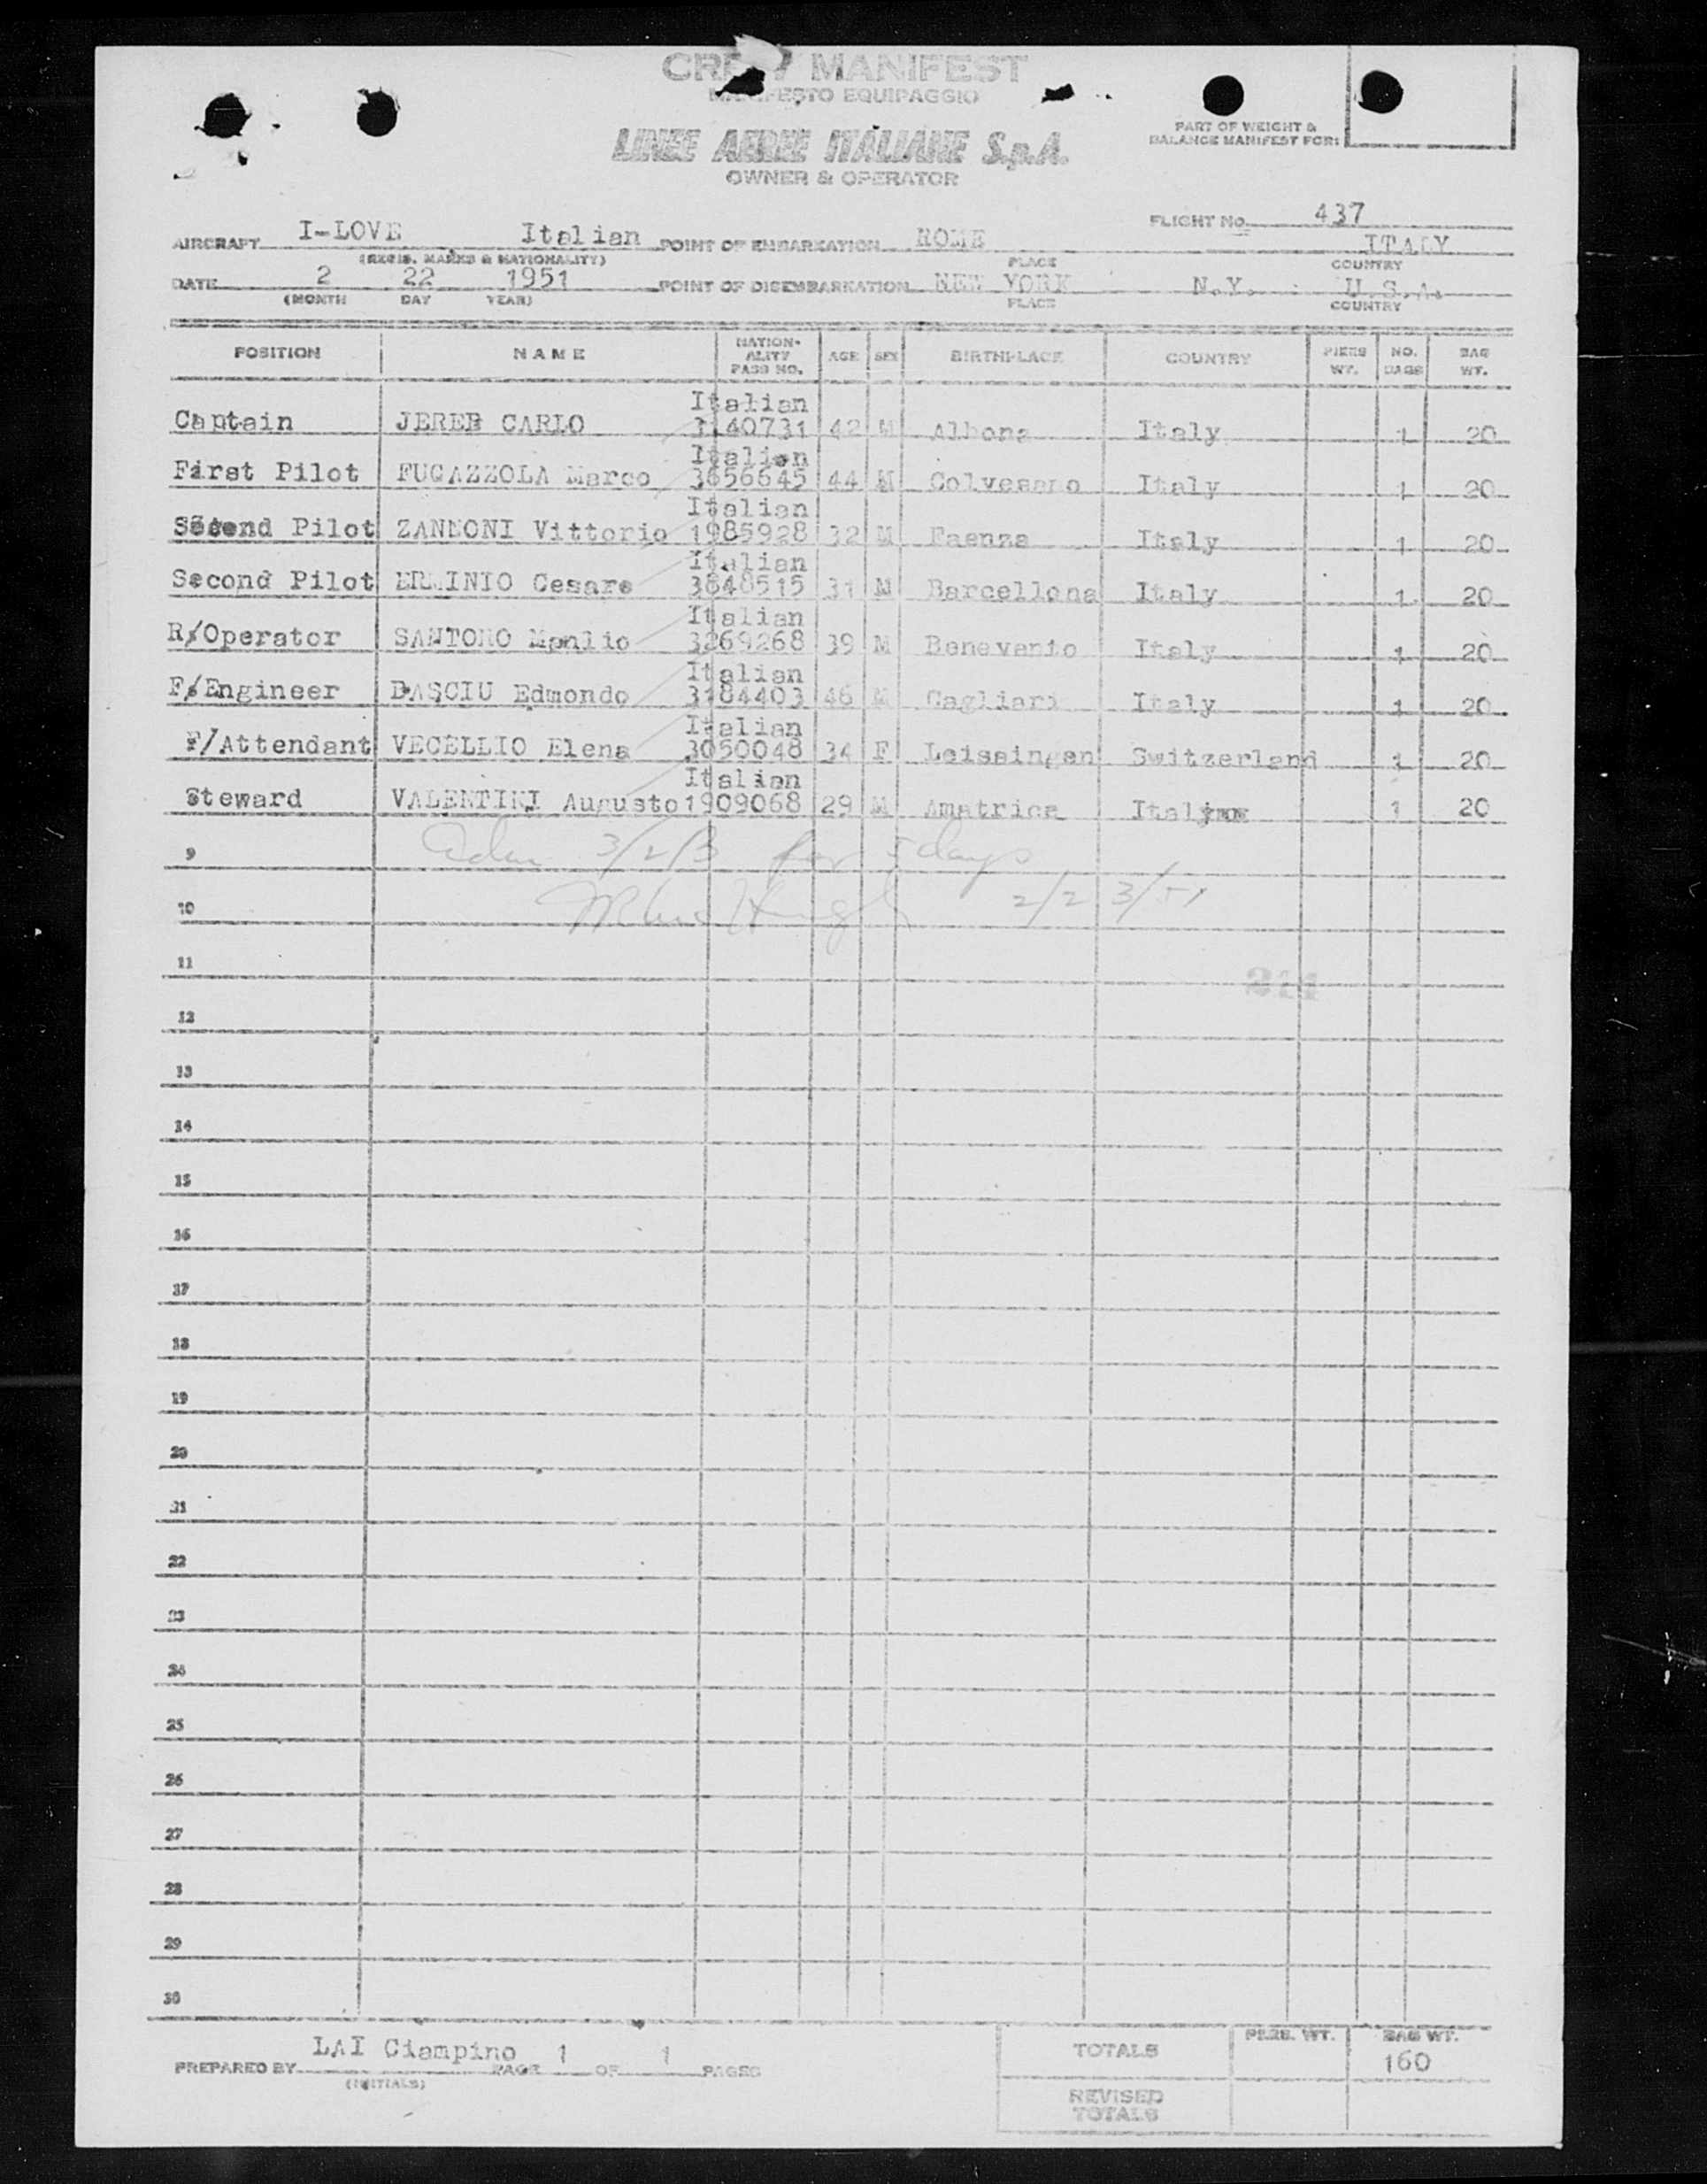 CREW MANIFEST
MANIFESTO EQUIPAGGIO
LINEE AEREE ITALIANE S.p.A.
OWNER & OPERATOR
PART OF WEIGHT &
BALANCE MANIFEST FOR:
FLIGHT No. 437
AIRCRAFT I-LOVE Italian POINT OF EMBARKATION ROME ITALY
(REGIS. MARKS & NATIONALITY) PLACE COUNTRY
DATE 2 22 1951 POINT OF DISEMBARKATION NEW YORK N.Y. U.S.A.
(MONTH DAY YEAR) PLACE COUNTRY
POSITION NAME NATION-ALITY PASS NO. AGE SEX BIRTHPLACE COUNTRY PIERS WT. NO. BAGS BAG WT.
Italian
Captain JEREB CARLO 3140731 42 M Albona Italy 1 20
Italian
First Pilot FUGAZZOLA Marco 3656645 44 M Italy 1 20
Italian
Second Pilot ZANNONI Vittorio 1985928 32 M Faenza Italy 1 20
Italian
Second Pilot ERMINIO Cesare 3848515 31 M Barcellona Italy 1 20
Italian
R/Operator SANTORO Manlio 3269268 39 M Benevento Italy 1 20
Italian
F/Engineer DASCIU Edmondo 3184403 46 M Cagliari Italy 1 20
Italian
F/Attendant VECELLIO Elena 3050048 34 F Leissingen Switzerland 1 20
Italian
Steward VALENTINI Augusto 1909068 29 M Amatrice Italy 1 20
9 3/2/3 for 5 days
10 2/23/51
11
12
13
14
15
16
17
18
19
20
21
22
23
24
25
26
27
28
29
30
PREPARED BY LAI Ciampino PAGE 1 OF 1 PAGES
(INITIALS)
TOTALS PERS. WT. BAG WT. 160
REVISED TOTALS